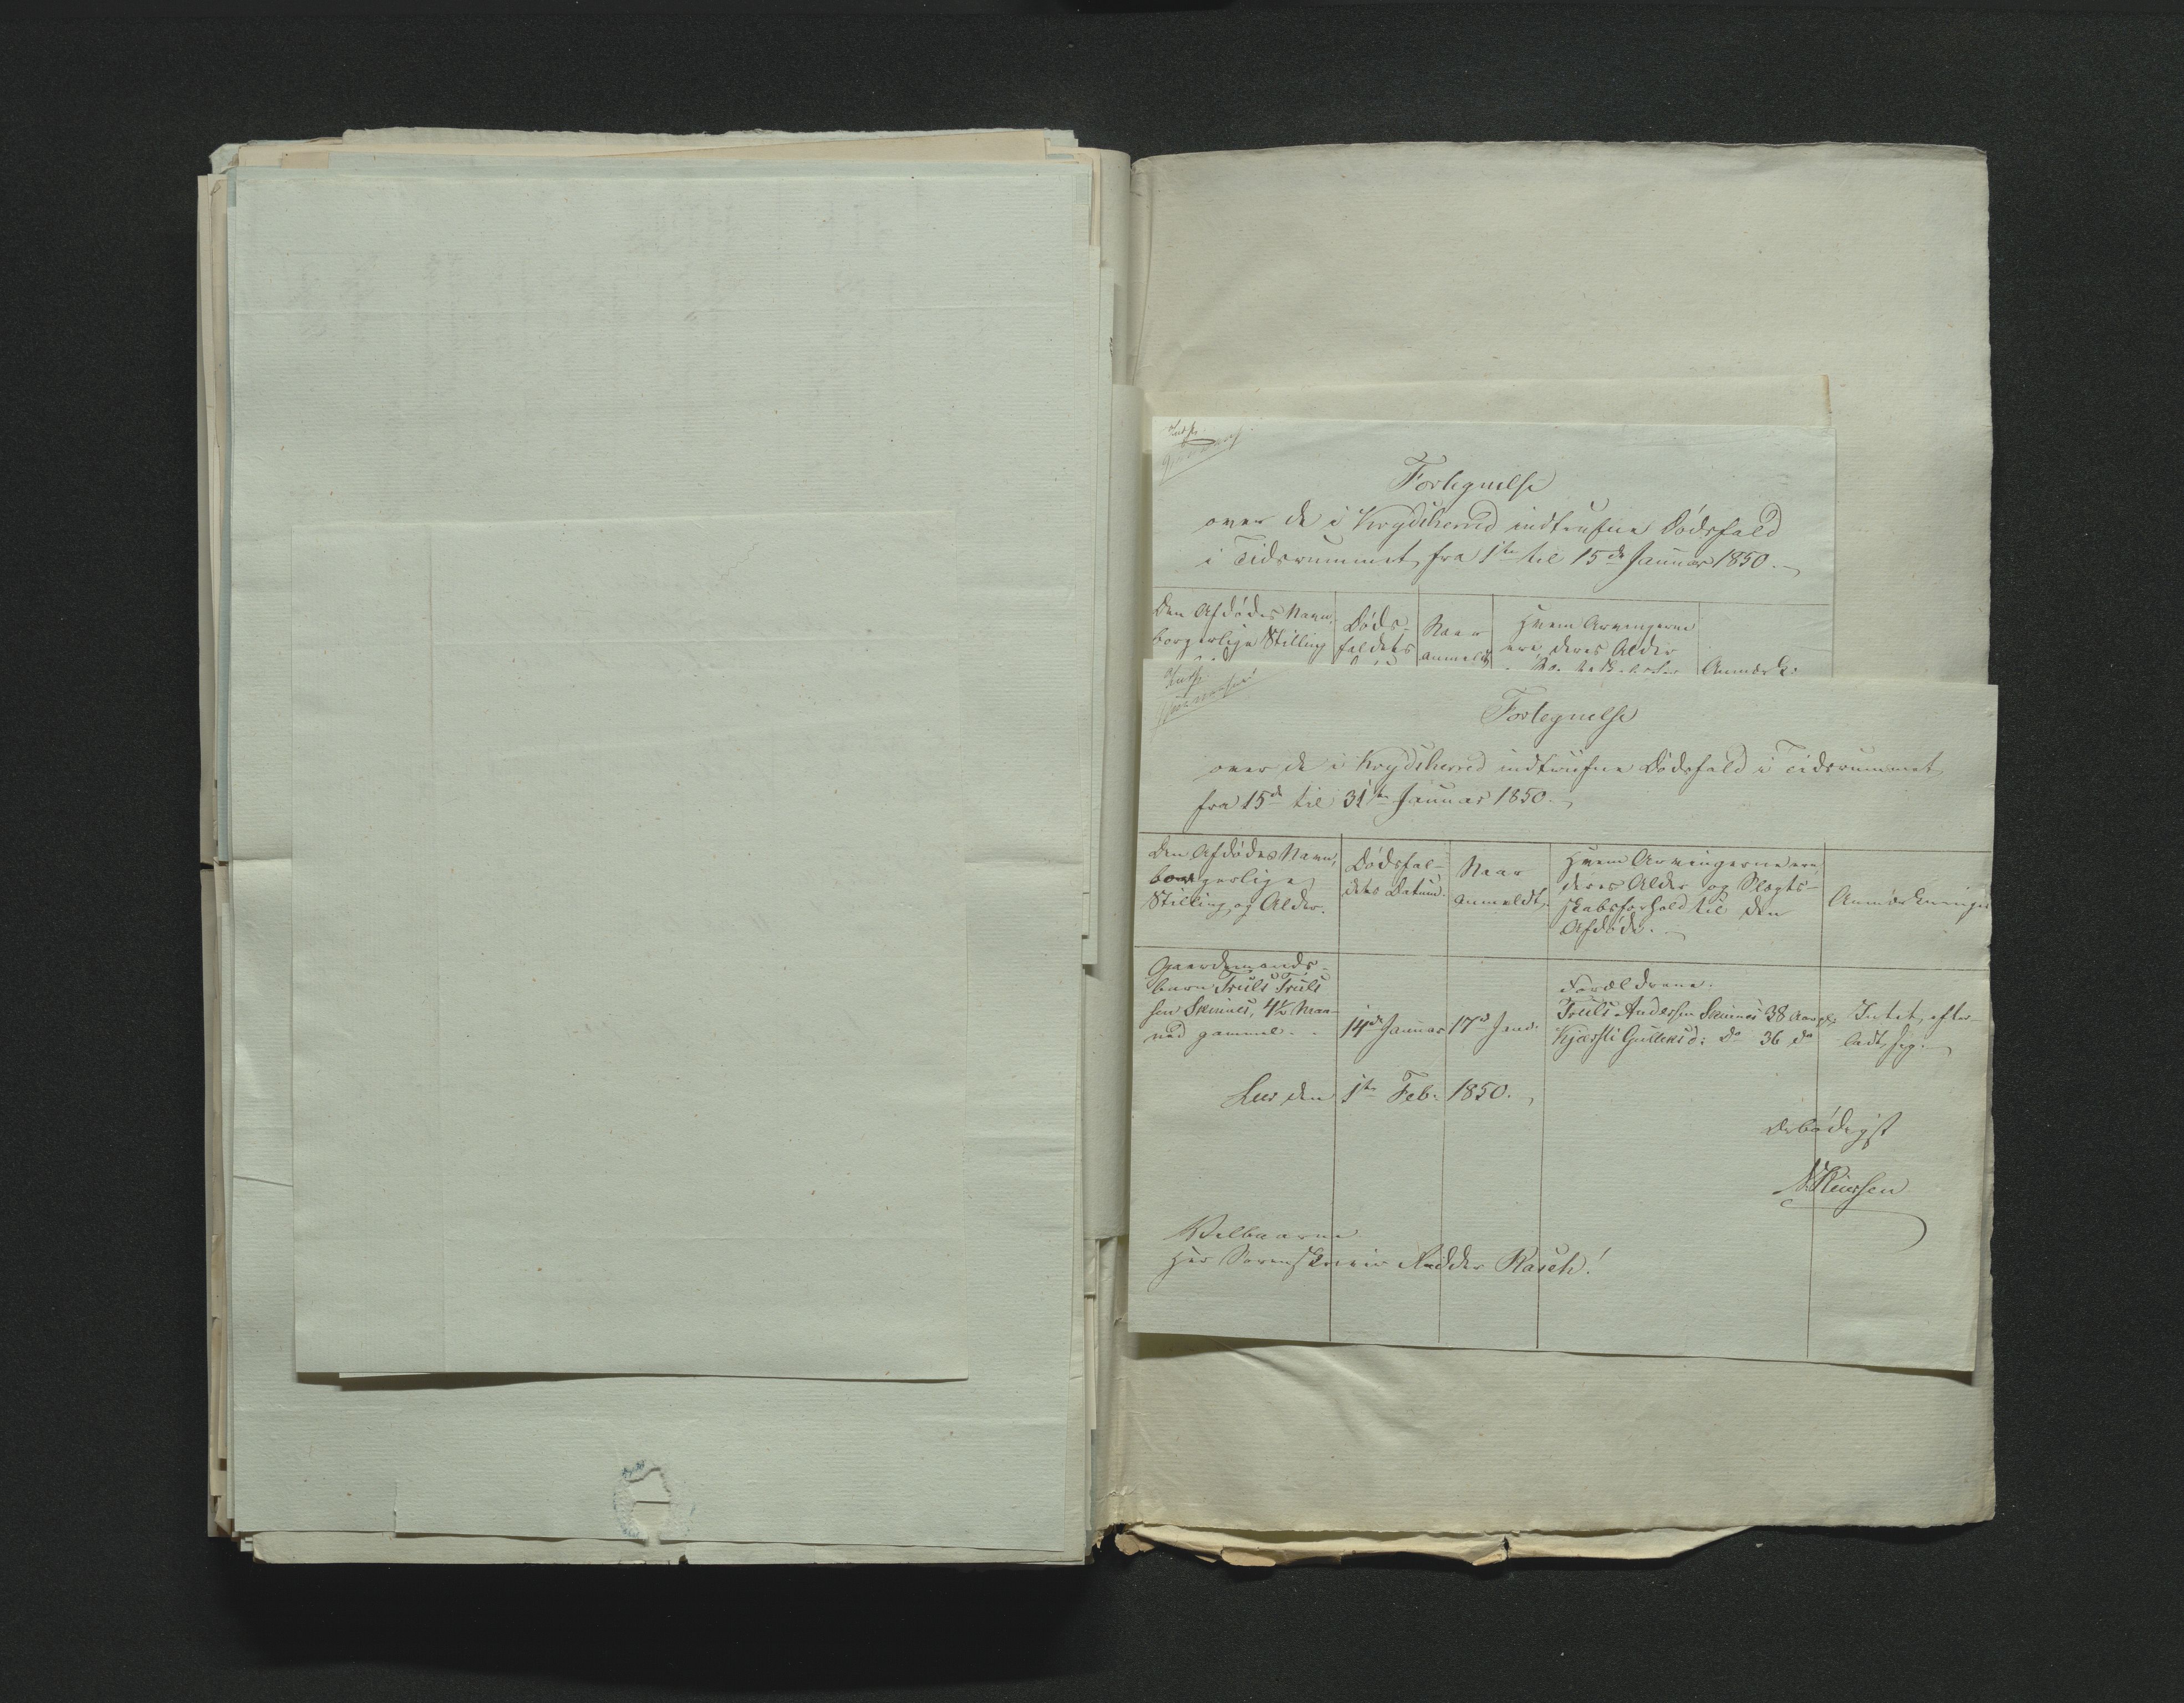 Fortegnelse
over de i Krydsherred indtrufne Dødsfald
i Tidsrummet fra 1ste til 15de Januar 1850.
Den Afdødes Navn,
borgerlige Stilling
Døds-
faldets
Naar
anmeldt
Hvem Arvingerne
ere, deres Alder
Anmærk:
Fortegnelse
over de i Krydsherred indtrufne Dødsfald i Tidsrummet
fra 15de til 31te Januar 1850.
Den Afdødes Navn,
borgerlige
Stilling og Alder.
Dødsfal-
dets Datum.
Naar
anmeldt.
Hvem Arvingerne ere,
deres Alder og Slægts-
skabsforhold til den
Afdøde.
Anmærkninger
Gaardmands-
barn Truls Truls
sen Skinnes, 4½ Maa-
ned gammel.
14de Januar
17de Janr.
Forældrene:
Truls Andersen Skinnes 38 Aar gl.
Kjersti Gulleksd: do 36 do
Intet efter-
ladt sig.
Lur den 1te Feb: 1850.
Ærbødigst
Velbaarne
Herr Sorenskriver Ridder Rasch!